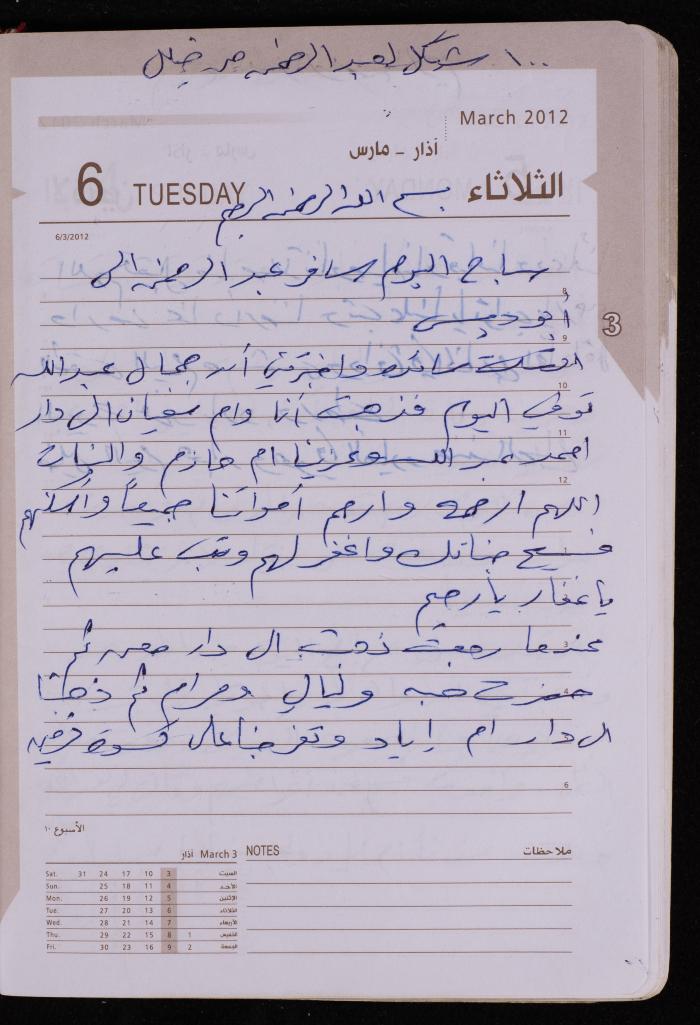 ١٠٠ شيكل لعبد الرحمن من
March 2012
آذار - مارس
6 TUESDAY الثلاثاء
بسم الله الرحمن الرحيم
6/3/2012
سباح اليوم سافر عبد الرحمن الى
8
أبو ديس
9
3
واخبرتني أن جمال عبدالله
10
توفي اليوم فذهبت أنا وام سفيان الى دار
11
احمد عبد الله وعزينا ام حازم والبنات
12
اللهم ارحمه وارحم أمواتنا جميعاً وأسكنهم
فسيح جناتك واغفر لهم وتب عليهم
يا غفار يا رحيم
عندما رجعت ذهبت الى دار معن ثم
3
وليالي ومرام ثم ذهبنا
4
الى دار ام إياد وتفرجنا على كسوة
6
الأسبوع ١٠
March 3 آذار
NOTES ملاحظات
Sat. 31 24 17 10 3 السبت
Sun. 25 18 11 4 الأحد
Mon. 26 19 12 5 الإثنين
Tue. 27 20 13 6 الثلاثاء
Wed. 28 21 14 7 الأربعاء
Thu. 29 22 15 8 1 الخميس
Fri. 30 23 16 9 2 الجمعة